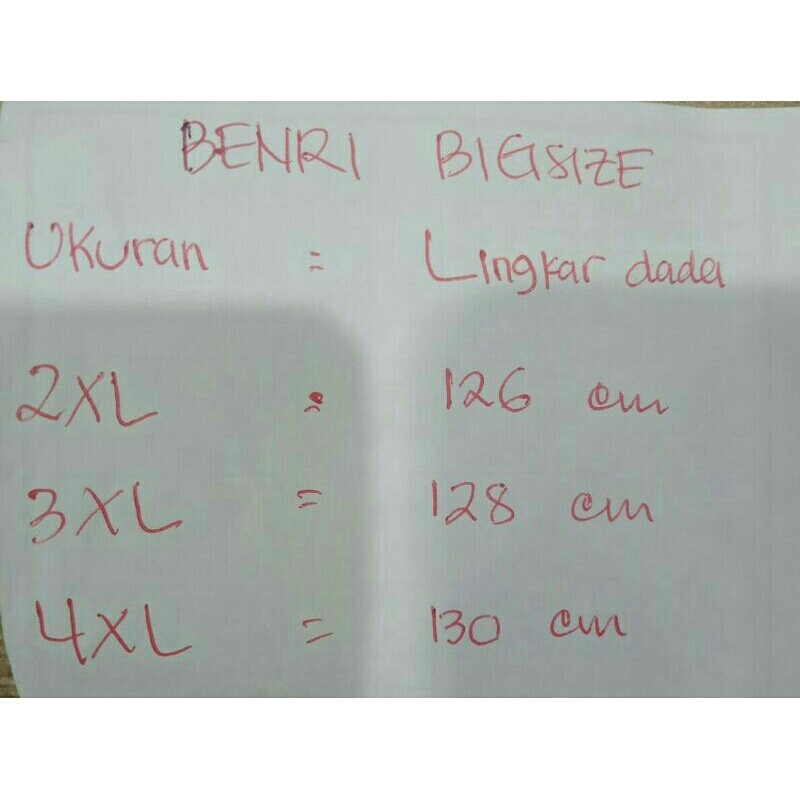 BENRI BIGSIZE
Ukuran = Lingkar dada
2XL = 126 cm
3XL = 128 cm
4XL = 130 cm